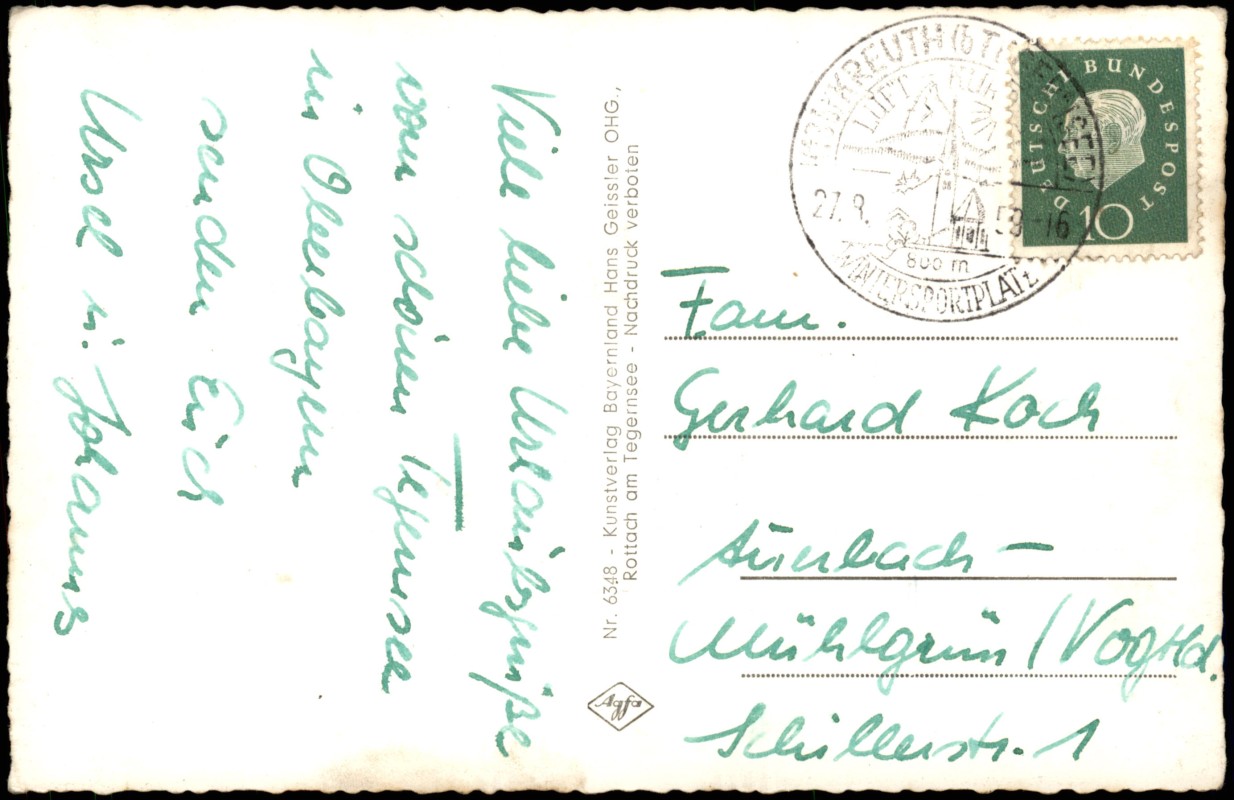 Viele liebe Urlaubsgrüße
vom schönen Tegernsee
in Oberbayern
senden Euch
Ursel u. Johannes
Nr. 6348 - Kunstverlag Bayernland Hans Geissler OHG.,
Rottach am Tegernsee - Nachdruck verboten
Agfa
KREUTH (b. TEGERNSEE)
LUFT KUR
27.8. 59-16
800 m
WINTERSPORTPLATZ
DEUTSCHE BUNDESPOST
10
Fam.
Gerhard Koch
Auerbach -
Mühlgrün / Vogtld.
Schillerstr. 1